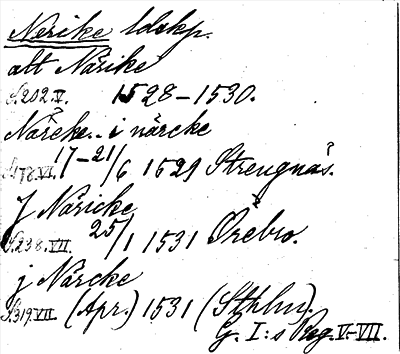 Nerike ldskp.
alt Närike
S.202.V. 1528-1530.
Närcke.. i närcke
S.178.VI. 17-21/6 1529 Strengnäs.
J Näricke
S.238.VII. 25/1 1531 Örebro.
j Närcke
S.319.VII. (Apr.) 1531 (Sthlm).
G. I:s Reg. V-VII.